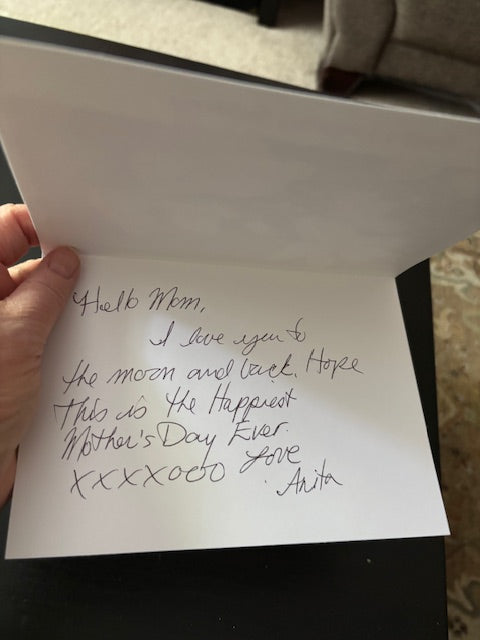 Hello Mom,
I love you to
the moon and back. Hope
This is the Happiest
Mother's Day Ever.
Love
XXXXOOO
Anita